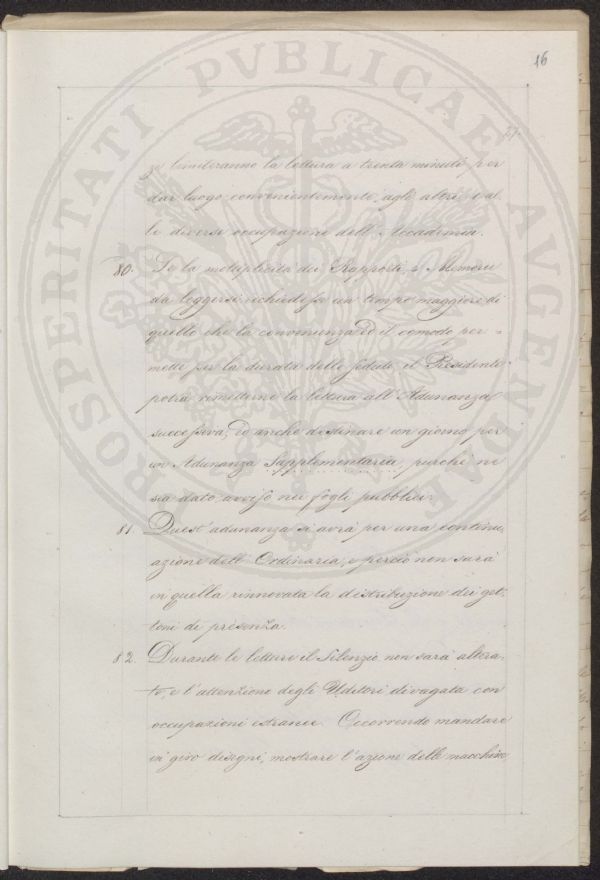 16
ze limiteranno la lettura a trenta minuti, per
dar luogo convenientemente, agli altri e al-
le diverse occupazioni dell'Accademia.
80. Se la moltiplicità dei Rapporti e Memorie
da leggersi richiedesse un tempo maggiore di
quello che la convenienza ed il comodo per=
mette per la durata delle sedute, il Presidente
potrà rimetterne la lettura all'Adunanza
successiva, ed anche destinare un giorno per
un Adunanza Supplementaria, purchè ne
sia dato avviso nei fogli pubblici.
81. Quest'adunanza si avrà per una continu-
azione dell'Ordinaria, e perciò non sarà
in quella rinnovata la distribuzione dei get-
toni di presenza.
82. Durante le letture il Silenzio non sarà altera-
to, e l'attenzione degli Uditori divagata con
occupazioni estranee. Occorrendo mandare
in giro disegni, mostrare l'azione delle macchine,
PROSPERITATI PVBLICAE AVGENDAE